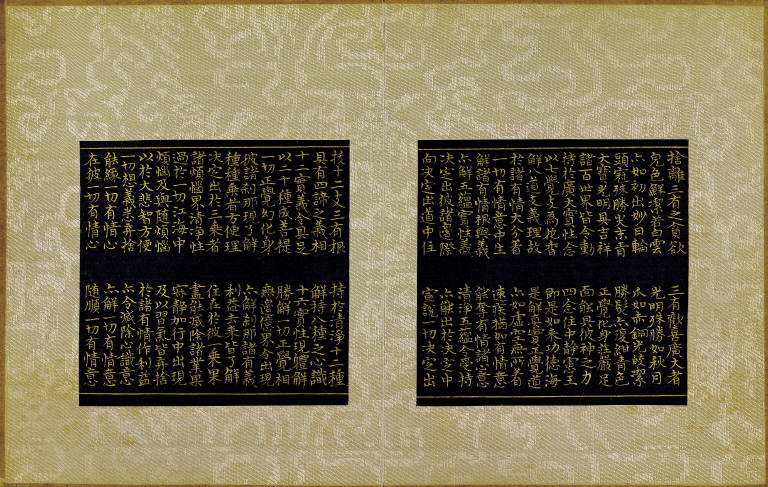 捨離三有之貪欲　三有歡喜廣大者
完色鮮潔若白雲　光明殊勝如秋月
亦如初出妙日輪　爪如赤銅光皎潔
頭冠殊勝尖末青　勝髮亦復紺青色
大寶光明具吉祥　正覺化身莊嚴足
諸百世界皆令動　而能具彼神之力
持於廣大實性念　四念住中靜慮王
以七覺支為花香　即是如來功德海
解八道支義理故　是解真實正覺道
於諸有情大分著　亦如虛空無所著
一切有情意中生　速疾猶如有情意
解諸有情根與義　能奪有情諸心意
亦解五蘊實性義　清淨五蘊令受持
決定出彼諸邊際　亦能出於決定中
向決定出道中住　宣說一切決定出
拔十二支三有根　持於清淨十二種
具有四諦之義相　解持八種之心識
十二實義令具足　十六實性現體解
以二十種成菩提　勝解一切正覺相
一切正覺幻化身　無邊億界令出現
彼諸剎那現了解　亦解剎那諸有義
種種乘者方便理　利益去來皆了解
決定出於三乘者　住在於彼一乘果
諸煩惱界清淨性　盡能滅除諸業果
過於一切江海中　寂靜如行中出現
煩惱及與隨煩惱　及以習氣皆棄捨
以於大悲智方便　於諸有情作利益
一切想義皆棄捨　亦令滅除心識意
能緣一切有情心　亦解一切有情意
在彼一切有情心　隨順一切有情意